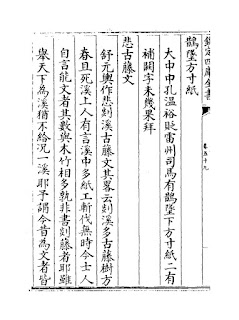 鵲墜方寸紙
大中中孔溫裕貶雷州司馬有鵲墜下方寸紙二有
補闕字未幾果拜
悲古藤文
舒元輿作悲剡溪古藤文其畧云剡溪多古藤樹方
春且死溪上人有言溪中多紙工斬伐無時今士人
自言能文者其數與麻竹相多就非書剡藤者耶雖
舉天下為溪猶不給況一溪耶予謂今昔為文者皆